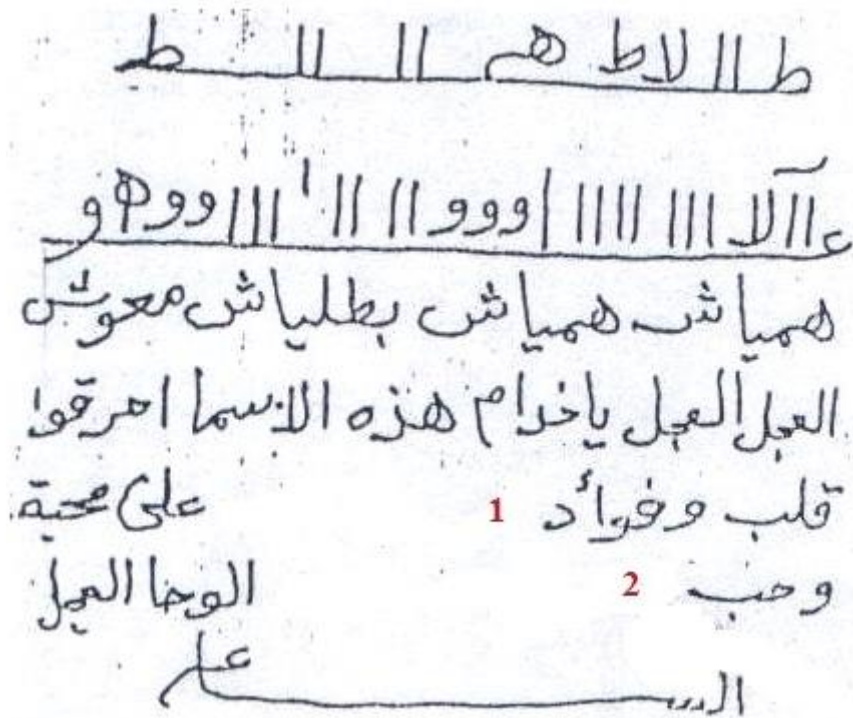 ط ١١ لا ط هم ١١ ١١ ط
ع آ ١ لا ١١١ ١١١١١ ١ و و و ١١ ١١ ١ ١١١ و و ه و
همياش همياش بطلياش معوش
العجل العجل ياخدام هذه الاسما احرقوا
قلب وفوأد 1 على محبة
وحب 2 الوحا العجل
الســــاعه